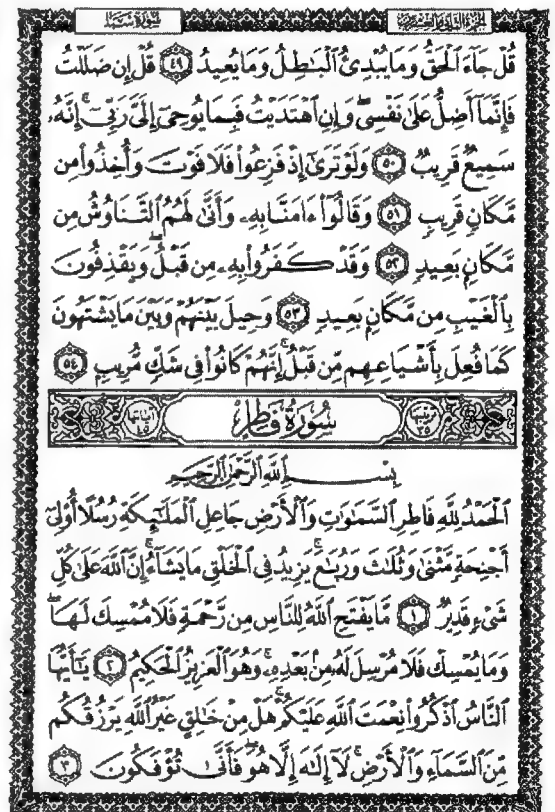 سُورَةُ سَبَإٍ
الجُزْءُ الثَّانِي وَالعِشْرُونَ
قُلْ جَآءَ ٱلْحَقُّ وَمَا يُبْدِئُ ٱلْبَـٰطِلُ وَمَا يُعِيدُ ٤٩ قُلْ إِن ضَلَلْتُ
فَإِنَّمَآ أَضِلُّ عَلَىٰ نَفْسِى وَإِنِ ٱهْتَدَيْتُ فَبِمَا يُوحِىٓ إِلَىَّ رَبِّىٓ إِنَّهُۥ
سَمِيعٌ قَرِيبٌ ٥٠ وَلَوْ تَرَىٰٓ إِذْ فَزِعُوا۟ فَلَا فَوْتَ وَأُخِذُوا۟ مِن
مَّكَانٍ قَرِيبٍ ٥١ وَقَالُوٓا۟ ءَامَنَّا بِهِۦ وَأَنَّىٰ لَهُمُ ٱلتَّنَاوُشُ مِن
مَّكَانٍۭ بَعِيدٍ ٥٢ وَقَدْ كَفَرُوا۟ بِهِۦ مِن قَبْلُ وَيَقْذِفُونَ
بِٱلْغَيْبِ مِن مَّكَانٍۭ بَعِيدٍ ٥٣ وَحِيلَ بَيْنَهُمْ وَبَيْنَ مَا يَشْتَهُونَ
كَمَا فُعِلَ بِأَشْيَاعِهِم مِّن قَبْلُ إِنَّهُمْ كَانُوا۟ فِى شَكٍّ مُّرِيبٍۭ ٥٤
ترتيبها ٣٥ سُورَةُ فَاطِرٍ آياتها ٤٥
بِسْمِ ٱللَّهِ ٱلرَّحْمَـٰنِ ٱلرَّحِيمِ
ٱلْحَمْدُ لِلَّهِ فَاطِرِ ٱلسَّمَـٰوَٰتِ وَٱلْأَرْضِ جَاعِلِ ٱلْمَلَـٰٓئِكَةِ رُسُلًا أُو۟لِىٓ
أَجْنِحَةٍ مَّثْنَىٰ وَثُلَـٰثَ وَرُبَـٰعَ يَزِيدُ فِى ٱلْخَلْقِ مَا يَشَآءُ إِنَّ ٱللَّهَ عَلَىٰ كُلِّ
شَىْءٍ قَدِيرٌ ١ مَّا يَفْتَحِ ٱللَّهُ لِلنَّاسِ مِن رَّحْمَةٍ فَلَا مُمْسِكَ لَهَا
وَمَا يُمْسِكْ فَلَا مُرْسِلَ لَهُۥ مِنۢ بَعْدِهِۦ وَهُوَ ٱلْعَزِيزُ ٱلْحَكِيمُ ٢ يَـٰٓأَيُّهَا
ٱلنَّاسُ ٱذْكُرُوا۟ نِعْمَتَ ٱللَّهِ عَلَيْكُمْ هَلْ مِنْ خَـٰلِقٍ غَيْرُ ٱللَّهِ يَرْزُقُكُم
مِّنَ ٱلسَّمَآءِ وَٱلْأَرْضِ لَآ إِلَـٰهَ إِلَّا هُوَ فَأَنَّىٰ تُؤْفَكُونَ ٣